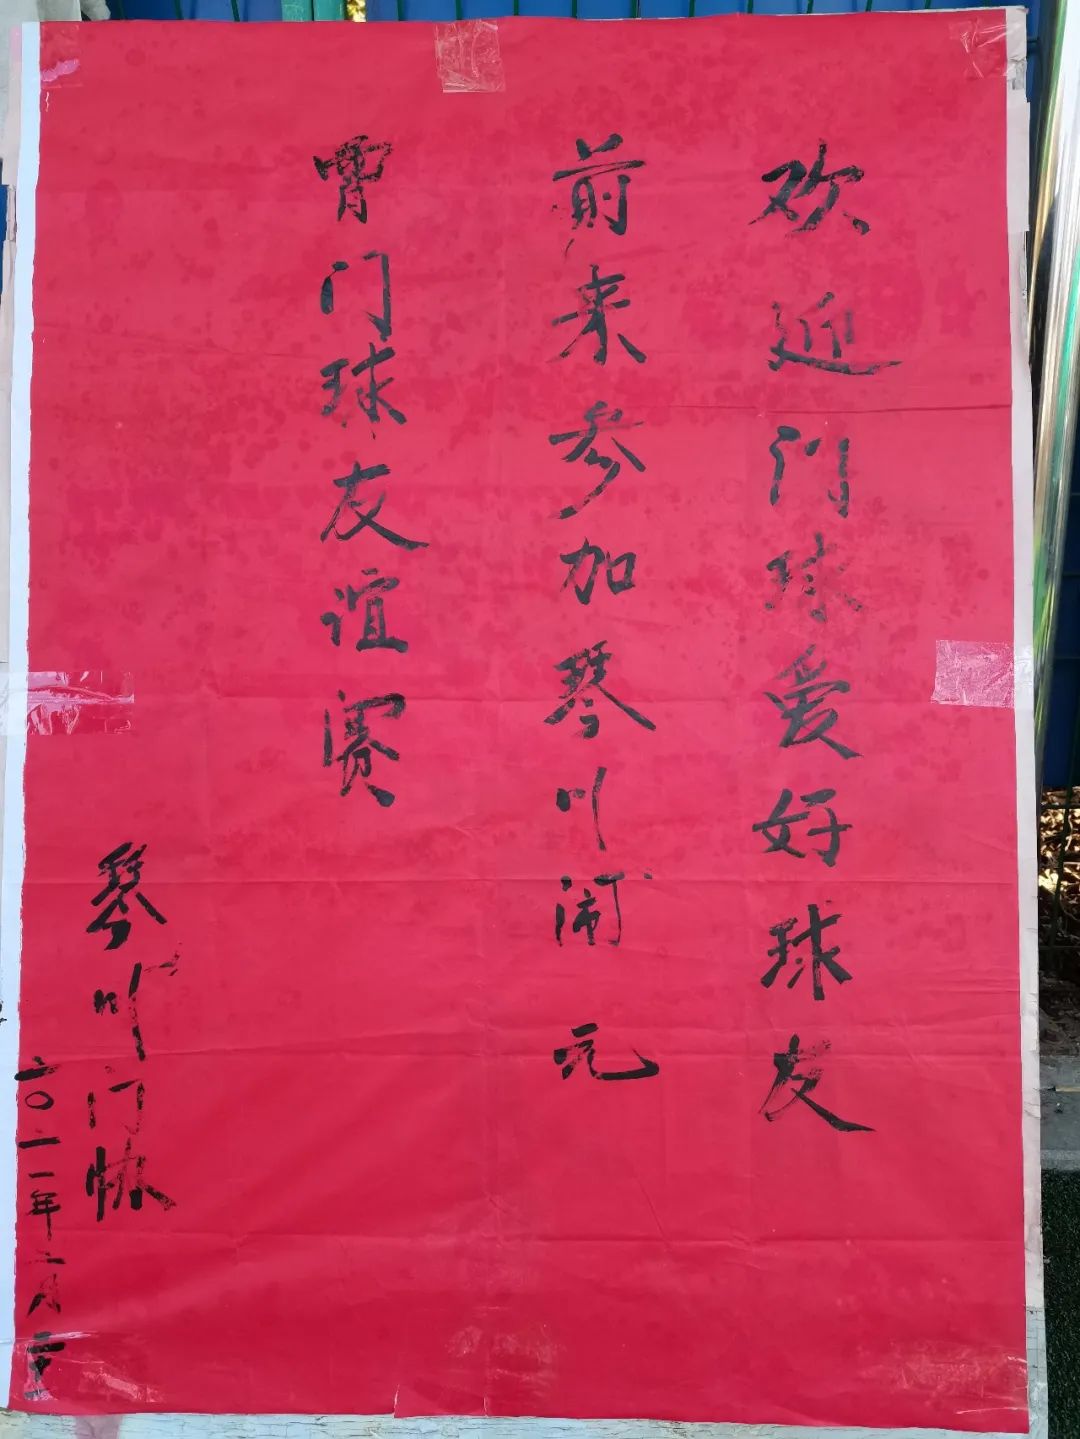 欢迎门球爱好球友
前来参加琴川闹元
宵门球友谊赛
琴川门协
二〇二一年二月